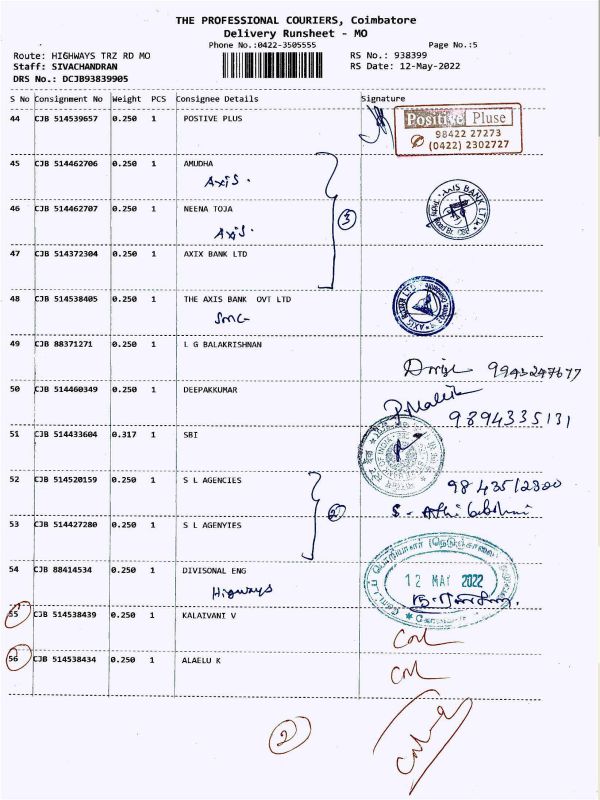 THE PROFESSIONAL COURIERS, Coimbatore
Delivery Runsheet - MO
Phone No.:0422-3505555 Page No.:5
Route: HIGHWAYS TRZ RD MO RS No.: 938399
Staff: SIVACHANDRAN RS Date: 12-May-2022
DRS No.: DCJB93839905
S No Consignment No Weight PCS Consignee Details Signature
44 CJB 514539657 0.250 1 POSTIVE PLUS
Positive Pluse
98422 27273
(0422) 2302727
45 CJB 514462706 0.250 1 AMUDHA
Axis.
3
46 CJB 514462707 0.250 1 NEENA TOJA
Axis.
AXIS BANK LTD
47 CJB 514372304 0.250 1 AXIX BANK LTD
48 CJB 514538405 0.250 1 THE AXIS BANK OVT LTD
49 CJB 88371271 0.250 1 L G BALAKRISHNAN
9943247677
50 CJB 514460349 0.250 1 DEEPAKKUMAR
P. Malik
9894335131
51 CJB 514433604 0.317 1 SBI
52 CJB 514520159 0.250 1 S L AGENCIES
2
53 CJB 514427280 0.250 1 S L AGENYIES
54 CJB 88414534 0.250 1 DIVISONAL ENG
Higways
12 MAY 2022
55 CJB 514538439 0.250 1 KALAIVANI V
56 CJB 514538434 0.250 1 ALAELU K
2